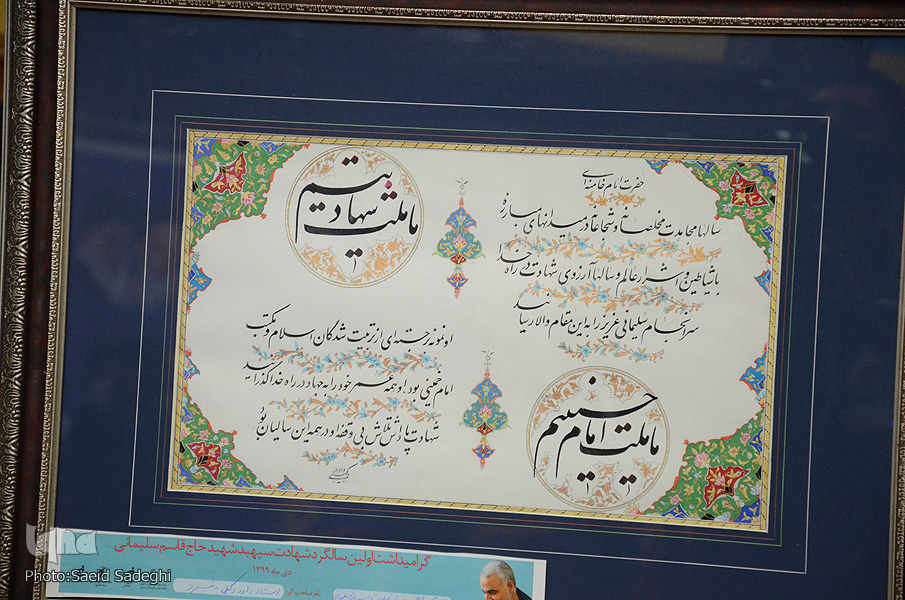 حضرت امام خامنه‌ای
سالها مجاهدت مخلصانه و شجاعانه در میدانهای مبارزه
با شیاطین و اشرار عالم و سالها آرزوی شهادت در راه خدا
سرانجام سلیمانی عزیز را به این مقام والا رسانید
ما ملت شهادتیم
او نمونه برجسته‌ای از تربیت شدگان اسلام و مکتب
امام خمینی بود او همه عمر خود را به جهاد در راه خدا گذرانید
شهادت پاداش تلاش بی وقفه او در همه این سالیان بود
ما ملت امام حسینیم
گرامیداشت اولین سالگرد شهادت سپهبد شهید حاج قاسم سلیمانی
دی ماه ۱۳۹۹
نام صاحب اثر:
iqna
Photo:Saeid Sadeghi